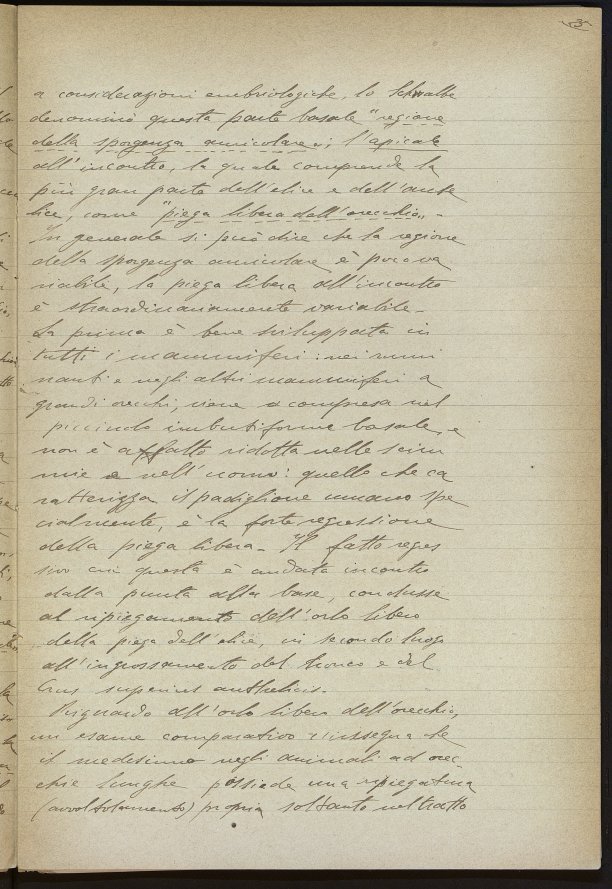 3
a considerazioni embriologiche, lo Schwalbe
denominò questa parte basale "regione
della sporgenza auricolare"; l'apicale
all'incontro, la quale comprende la
più gran parte dell'elice e dell'ante
lice, come "piega libera dell'orecchio". -
In generale si può dire che la regione
della sporgenza auricolare è poco va
riabile, la piega libera all'incontro
è straordinariamente variabile. -
La prima è bene sviluppata in
tutti i mammiferi: nei rumi
nanti e negli altri mammiferi a
grandi orecchi, viene compresa nel
picciuolo imbutiforme basale, e
non è affatto ridotta nelle scim
mie e nell'uomo: quello che ca
ratterizza il padiglione umano spe
cialmente, è la forte regressione
della piega libera. - Il fatto regres
sivo cui questa è andata incontro
dalla punta alla base, condusse
al ripiegamento dell'orlo libero
della piega dell'elice, in secondo luogo
all'ingrossamento del tronco e del
Crus superius anthelicis. -
Riguardo all'orlo libero dell'orecchio,
un esame comparativo c'insegna che
il medesimo negli animali ad orec-
chie lunghe possiede una ripiegatura
(avvoltolamento) propria soltanto nel tratto